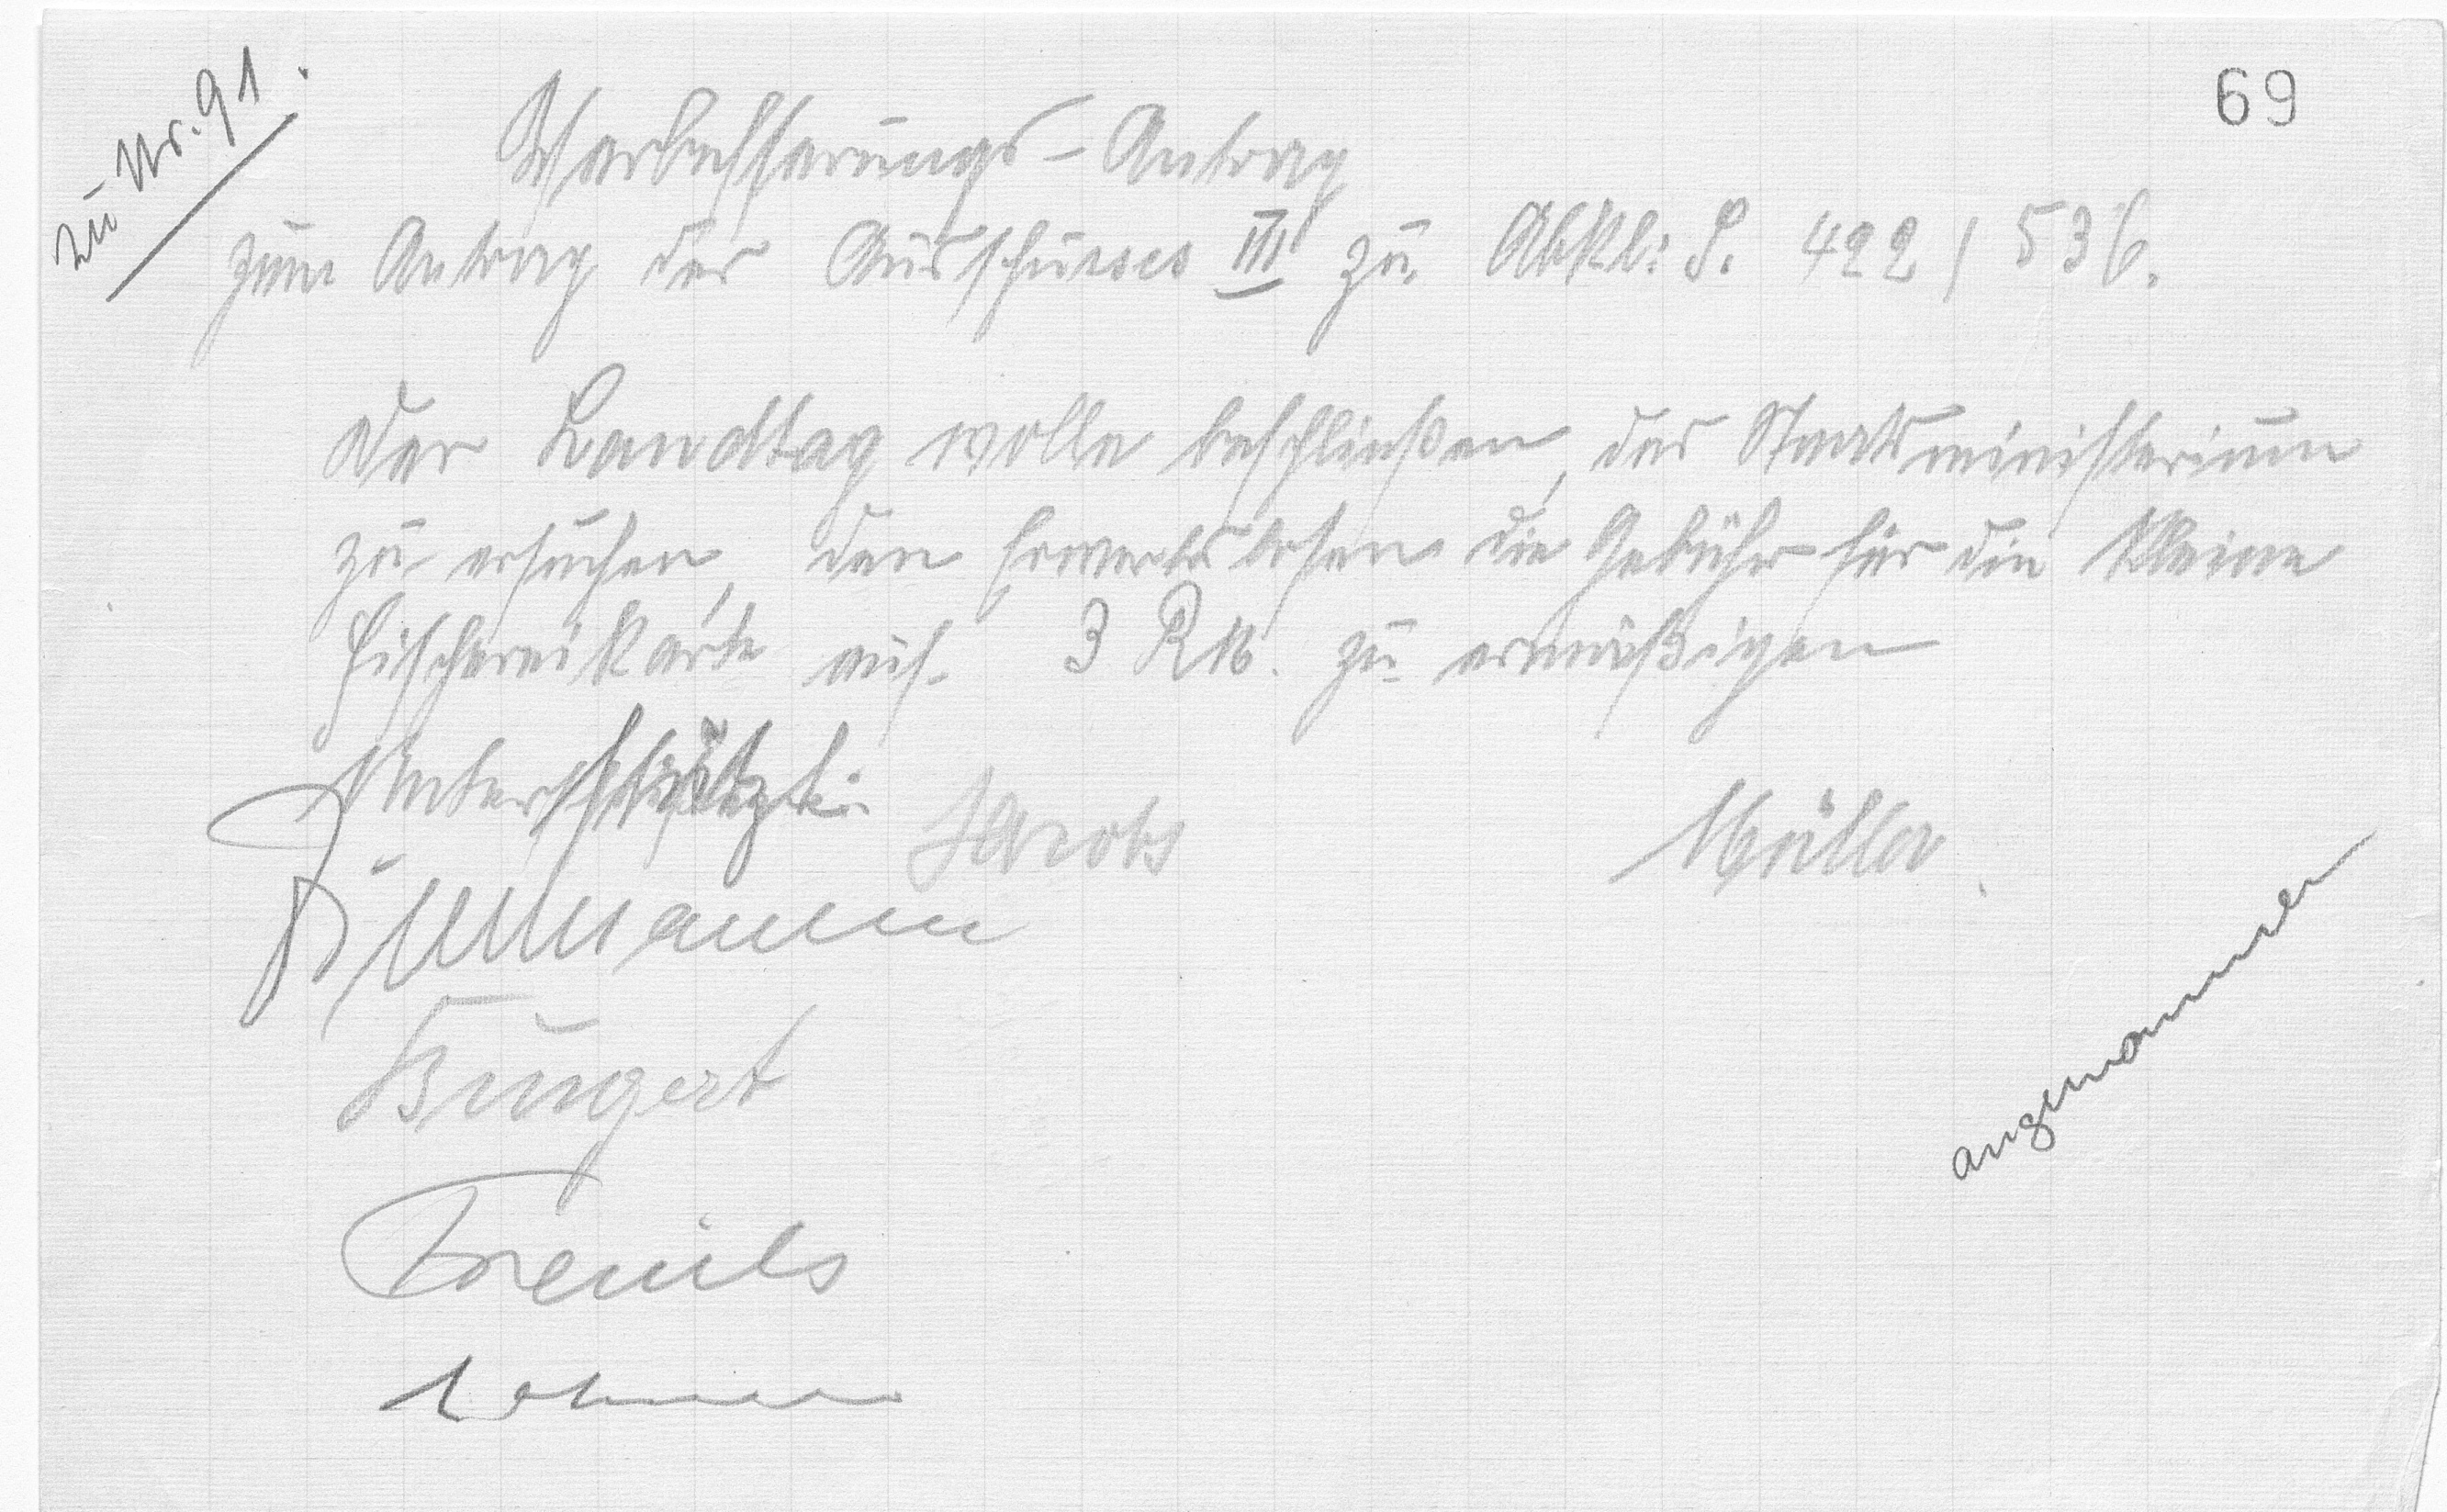 zu Nr. 91.
69
Verbesserungs-Antrag
zum Antrag des Ausschusses III zu Abkl: S. 422/536.
Der Landtag wolle beschließen, das Staatsministerium
zu ersuchen, den Erwerbslosen die Gebühr für die kleine
Fischereikarte auf 3 RM. zu ermäßigen
Unterstützt:
Jacobs
Müller.
Zimmermann
Bungert
angenommen